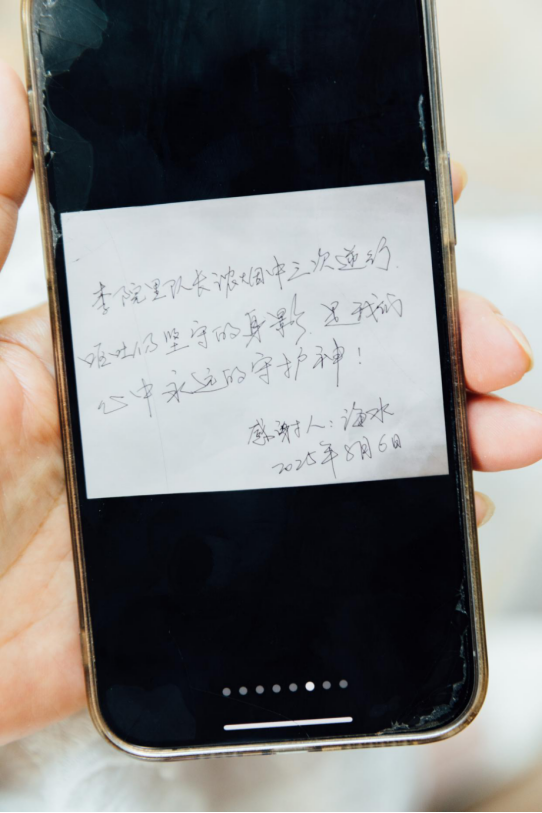 李院里队长浓烟中三次逆行.
呕吐仍坚守的身影.是我们
心中永远的守护神!
感谢人:海水
2025年8月6日